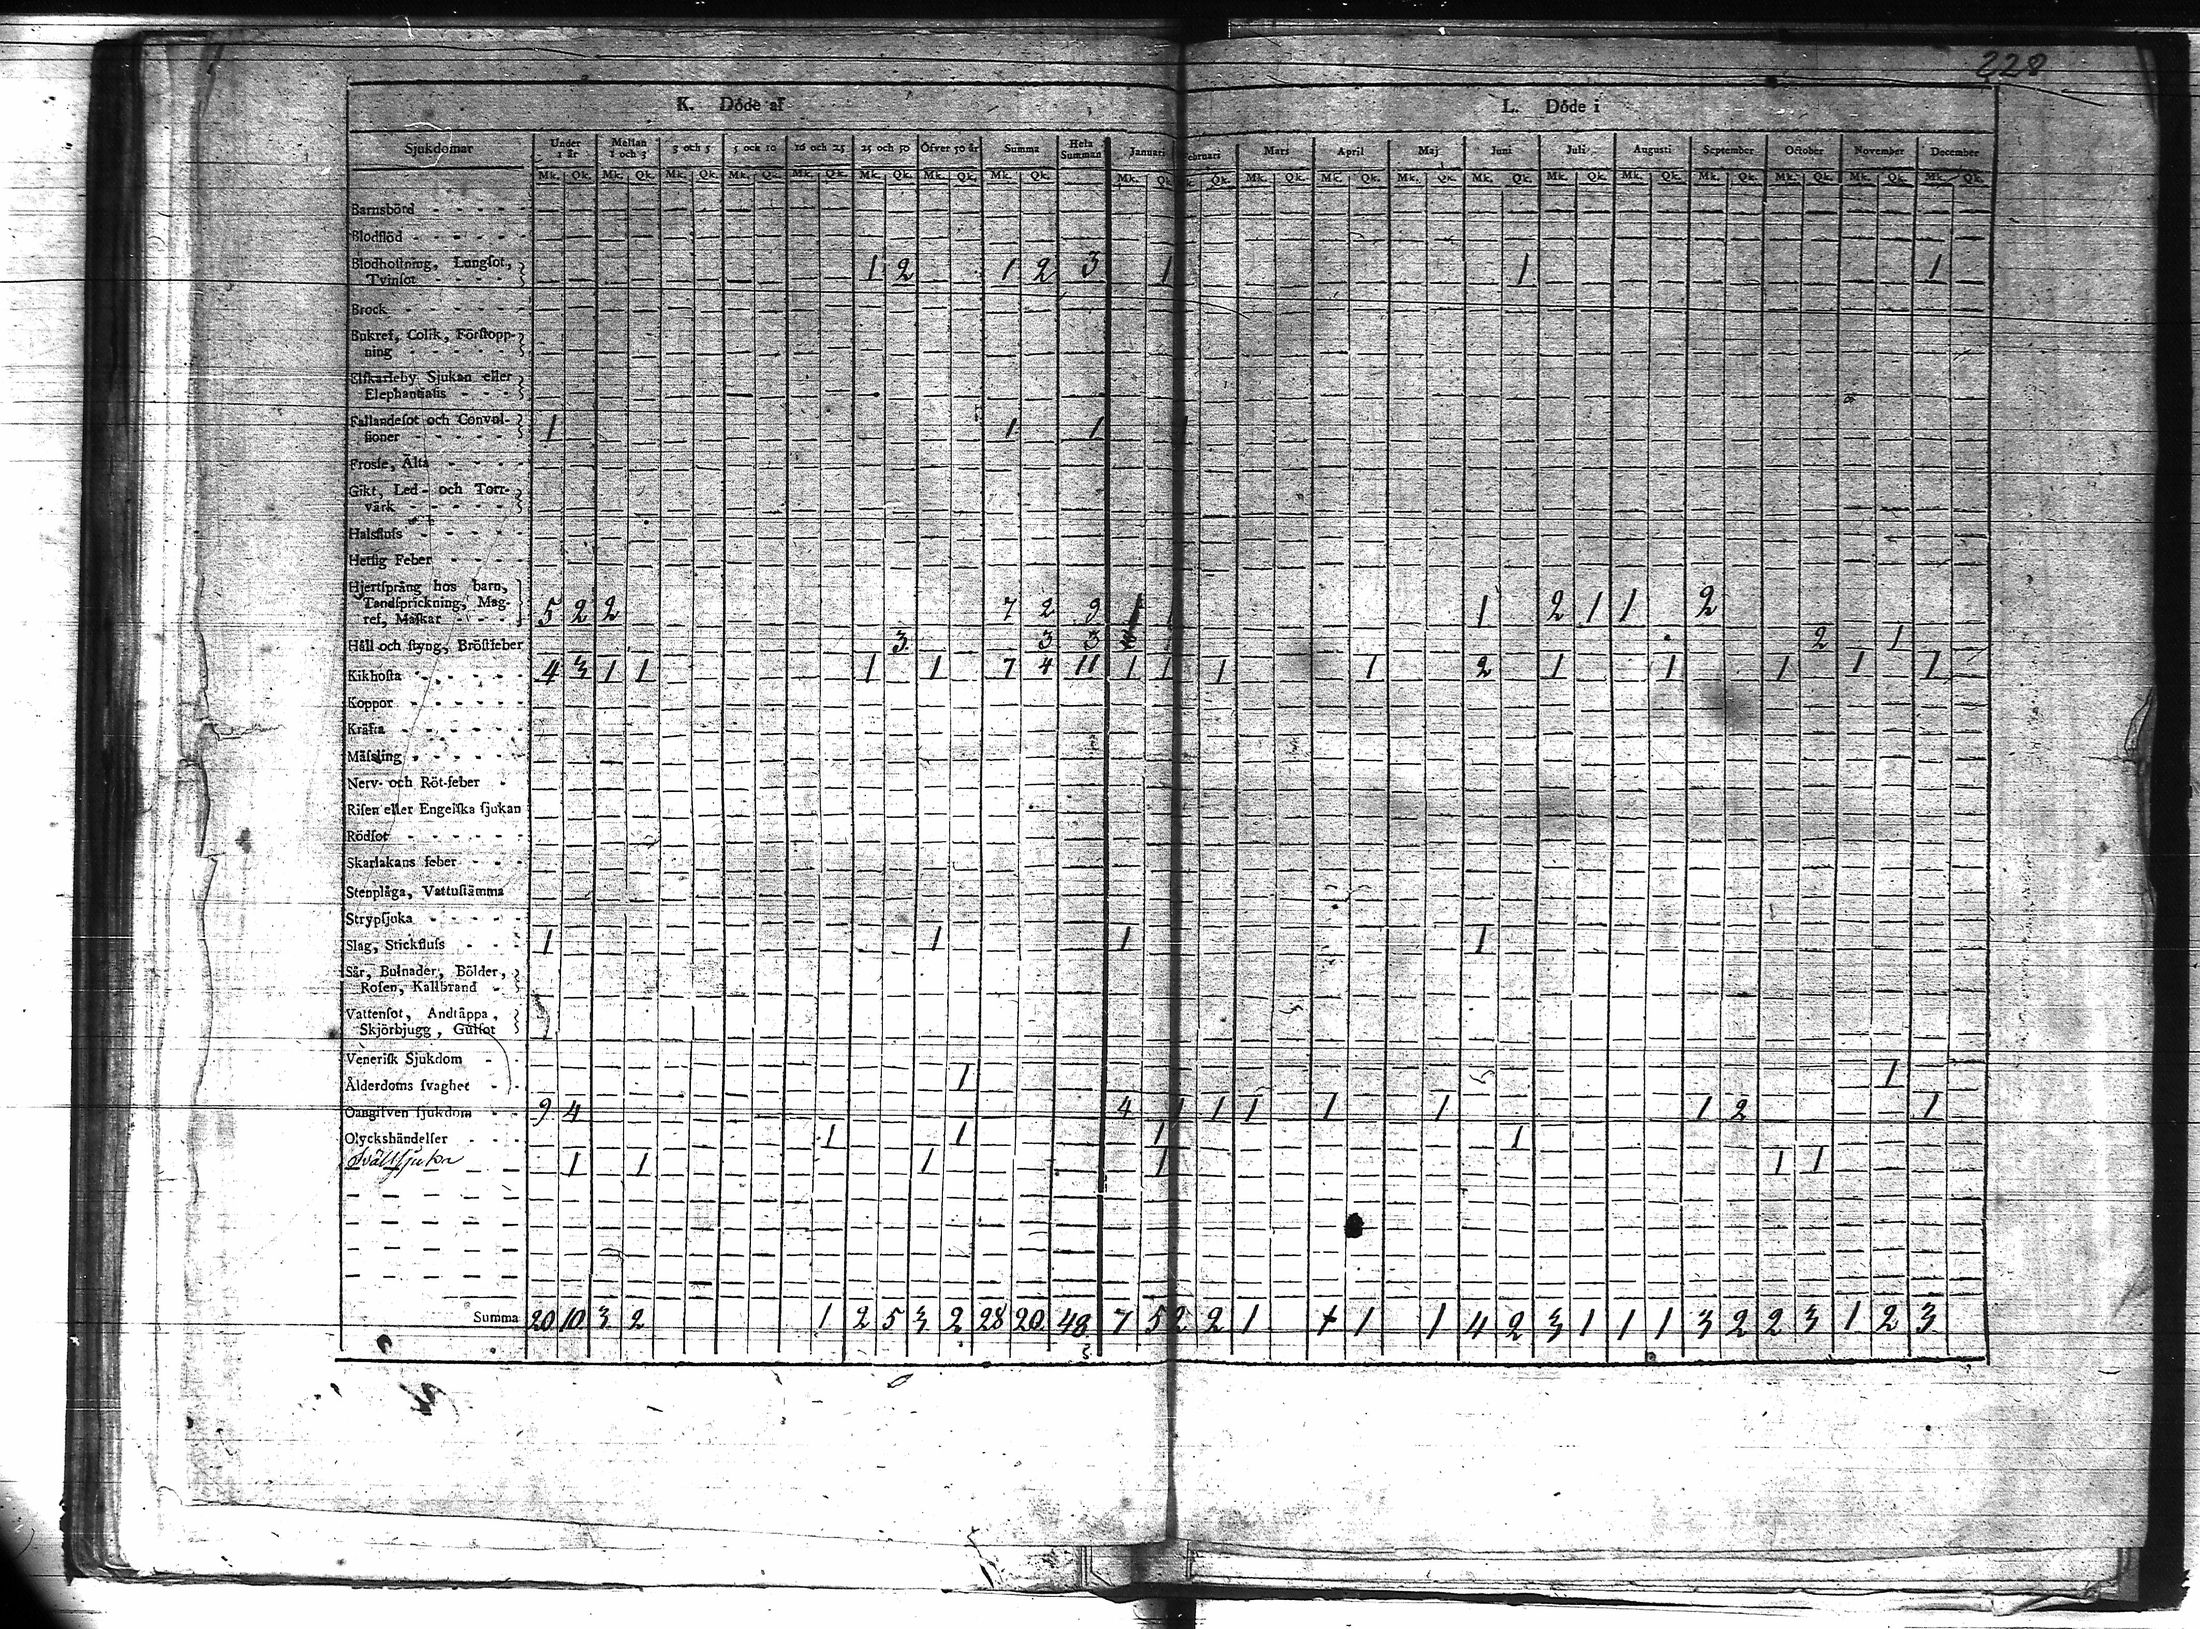 228
K. Döde af
L. Döde i
Sjukdomar Under 1 år Mellan 1 och 3 3 och 5 5 och 10 10 och 25 25 och 50 Öfver 50 år Summa Hela Summan Januari Februari Mars April Maj Juni Juli Augusti September October November December
Mk. Qk. Mk. Qk. Mk. Qk. Mk. Qk. Mk. Qk. Mk. Qk. Mk. Qk. Mk. Qk. Mk. Qk. Qk. Mk. Qk. Mk. Qk. Mk. Qk. Mk. Qk. Mk. Qk. Mk. Qk. Mk. Qk. Mk. Qk. Mk. Qk. Mk. Qk.
Barnsbörd
Blodflöd
Blodhostning, Lungſot,
Tvinſot 1 2 1 2 3 1 1 1
Brock
Bukref, Colik, Förſtopp-
ning
Elfkarleby Sjukan eller
Elephantiaſis
Fallandeſot och Convul-
ſioner 1 1 1 1
Froſſe, Älta
Gikt, Led- och Torr-
värk
Halsfluſs
Hetſig Feber
Hjertſprång hos barn,
Tandſprickning, Mag-
ref, Maſkar 5 2 2 7 2 9 1 1 1 2 1 1 2
Håll och ſtyng, Bröſtfeber 3 3 3 2 1
Kikhoſta 4 3 1 1 1 1 7 4 11 1 1 1 1 2 1 1 1 1 1
Koppor
Kräfta
Mäſsling
Nerv- och Röt-feber
Riſen eller Engelſka ſjukan
Rödſot
Skarlakans feber
Stenplåga, Vattuſtämma
Strypſjuka
Slag, Stickfluſs 1 1 1 1
Sår, Bulnader, Bölder,
Roſen, Kallbrand
Vattenſot, Andtäppa,
Skjörbjugg, Gulſot
Veneriſk Sjukdom
Ålderdoms ſvaghet 1 1
Oangifven ſjukdom 9 4 4 1 1 1 1 1 1 2 1
Olyckshändelſer 1 1 1 1
Svältſjuka 1 1 1 1 1 1
Summa 20 10 3 2 1 2 5 3 2 28 20 48 7 5 2 2 1 1 1 1 4 2 3 1 1 1 3 2 2 3 1 2 3